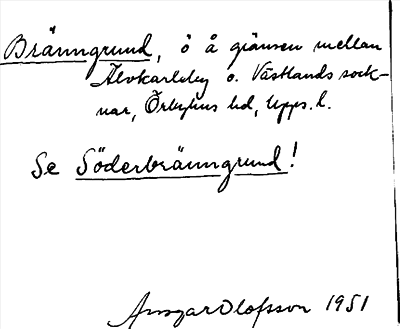 Bränngrund, ö å gränsen mellan
Älvkarleby o. Västlands sock-
nar, Örbyhus hd, Upps. l.
Se Söderbränngrund!
Ansgar Olofsson 1951